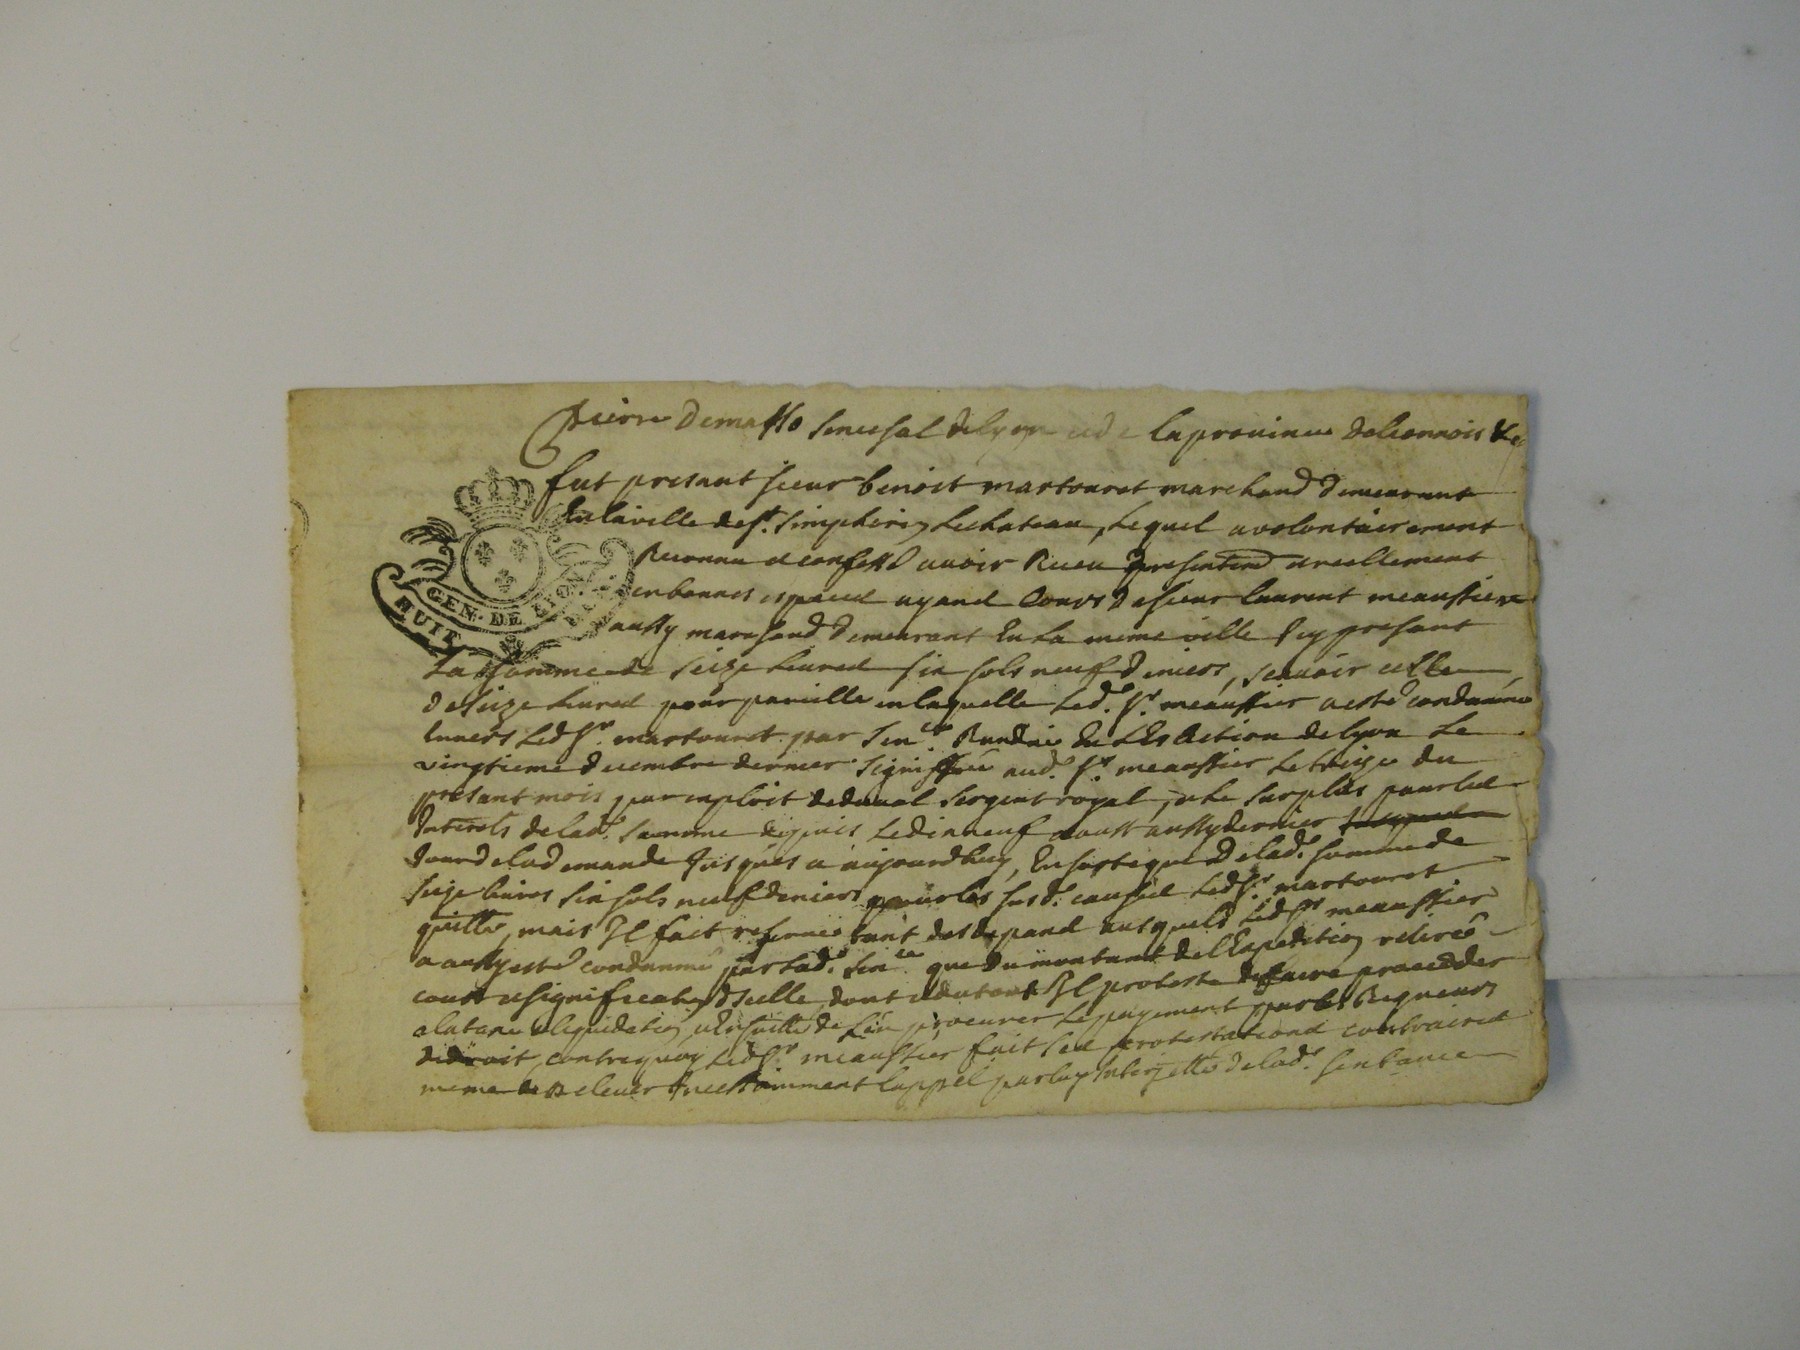 Pierre Demasso Senechal de lyon et de la province de lionnois &c
fut presant sieur benoist martouret marchand demeurant
En la ville de st. Simphorien le chateau, lequel a volontairement
Reconnu et confessé avoir Receu presentemt et reellement
en bonnes especes ayand Cours de sieur laurent meaussier
aussy marchand demeurant En La meme ville Icy presant
GEN. DE LYON
HUIT DEN.
La somme de seize livres six sols neuf deniers, scavoir celle
de seize livres pour pareille en laquelle led. Sr. meaussier a esté condamné
Envers led Sr. martouret par Sence. Rendue En L'Election de lyon Le
vingtieme decembre dernier signiffiée aud. Sr. meaussier le treize du
presant mois par exploit de sergent royal, et le surplus pour les
Interets de lad. somme depuis le dix neuf aoust aussy dernier
Jour de la demande Jusques a aujourdhuy, En sorte que de lad. somme de
seize livres six sols neuf deniers pour les susd. causes led Sr. martouret
quitte, mais Il fait reserve tant des depand ausquels led Sr meaussier
a aussy esté condamné par lad. Sence que du montant de l'Expedition retirée
coust et signification d'Icelle dont du tout Il proteste de faire proceder
a la taxe et liquidation, et Ensuitte de s'en procurer le payement par les Rigueurs
de droit, contre quoy led Sr. meaussier fait ses protestations contraires
meme de Relever Incessamment l'appel par luy Interjetté de lad. sentance